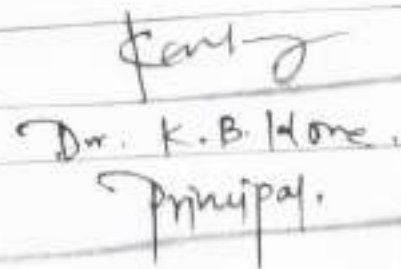 Dr. K. B. Kore.
Principal.